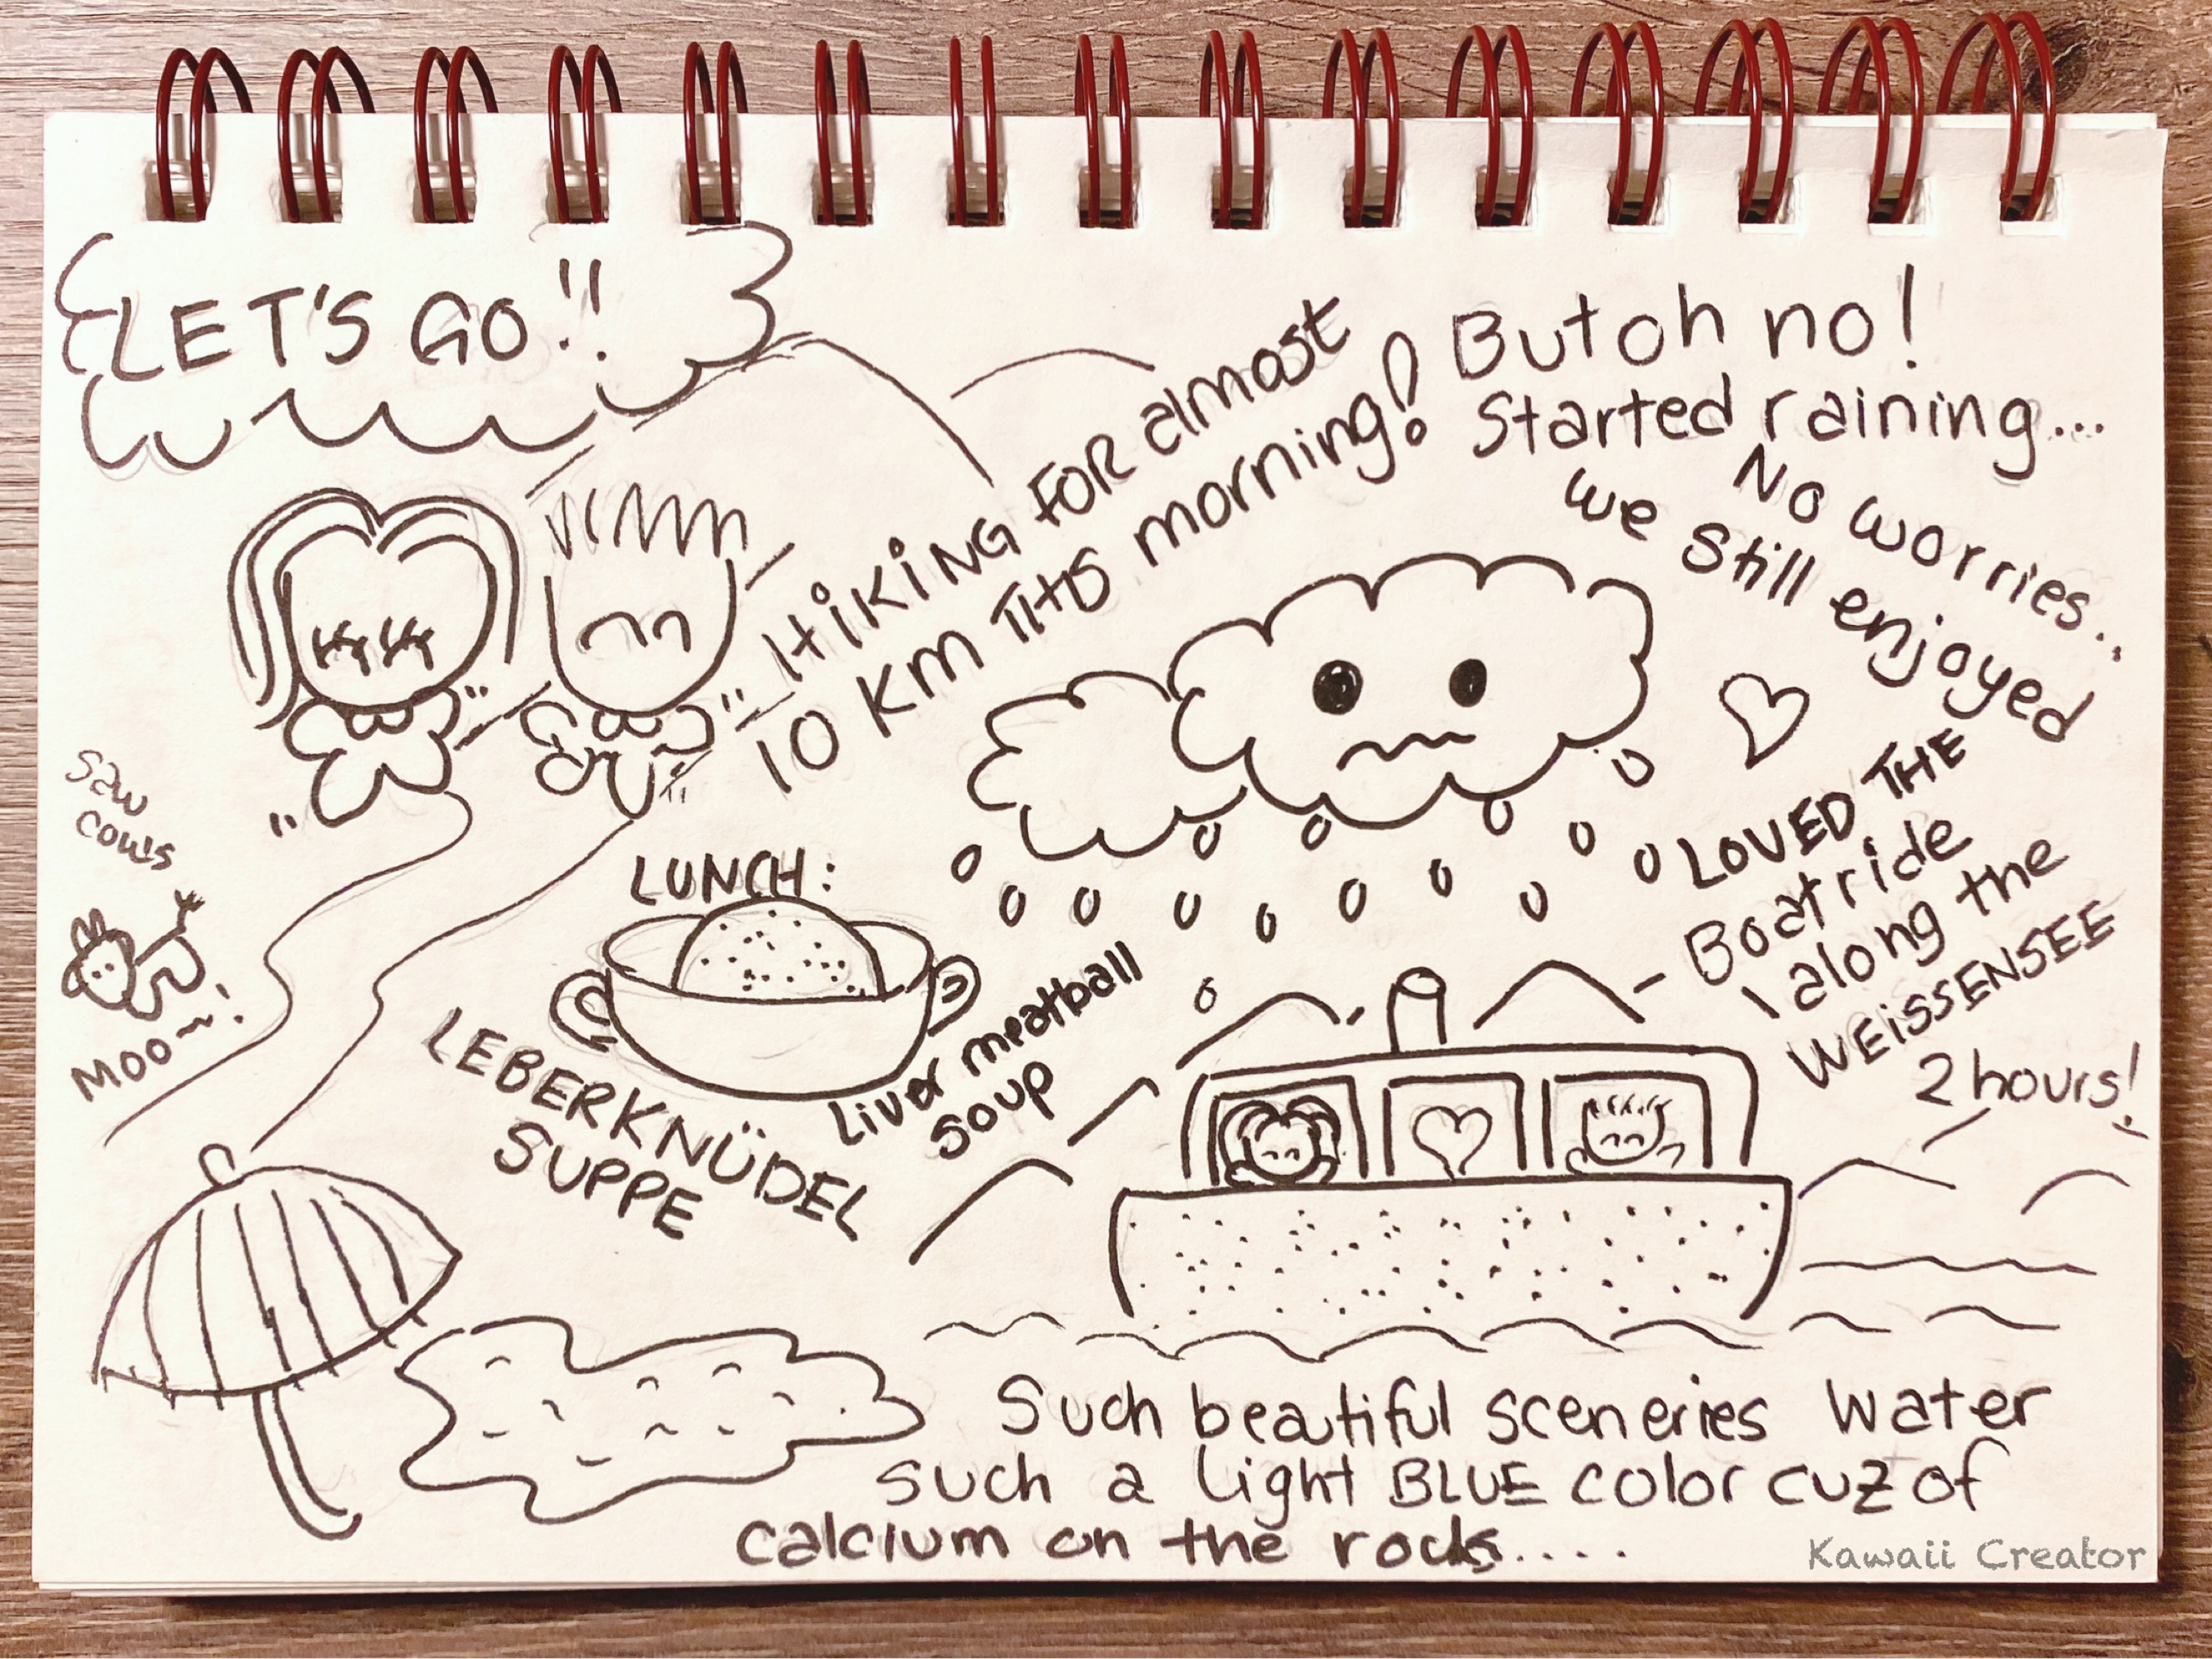 LET'S GO!!
HiKiNG FOR almost
10 KM THIS morning!
But oh no!
Started raining...
No worries...
we still enjoyed
LOVED THE
Boat ride
along the
WEiSSENSEE
2 hours!
saw
cows
MOO~!
LUNCH:
LEBERKNÜDEL
SUPPE
Liver meatball
soup
Such beautiful sceneries Water
such a light BLUE color cuz of
calcium on the rocks....
Kawaii Creator